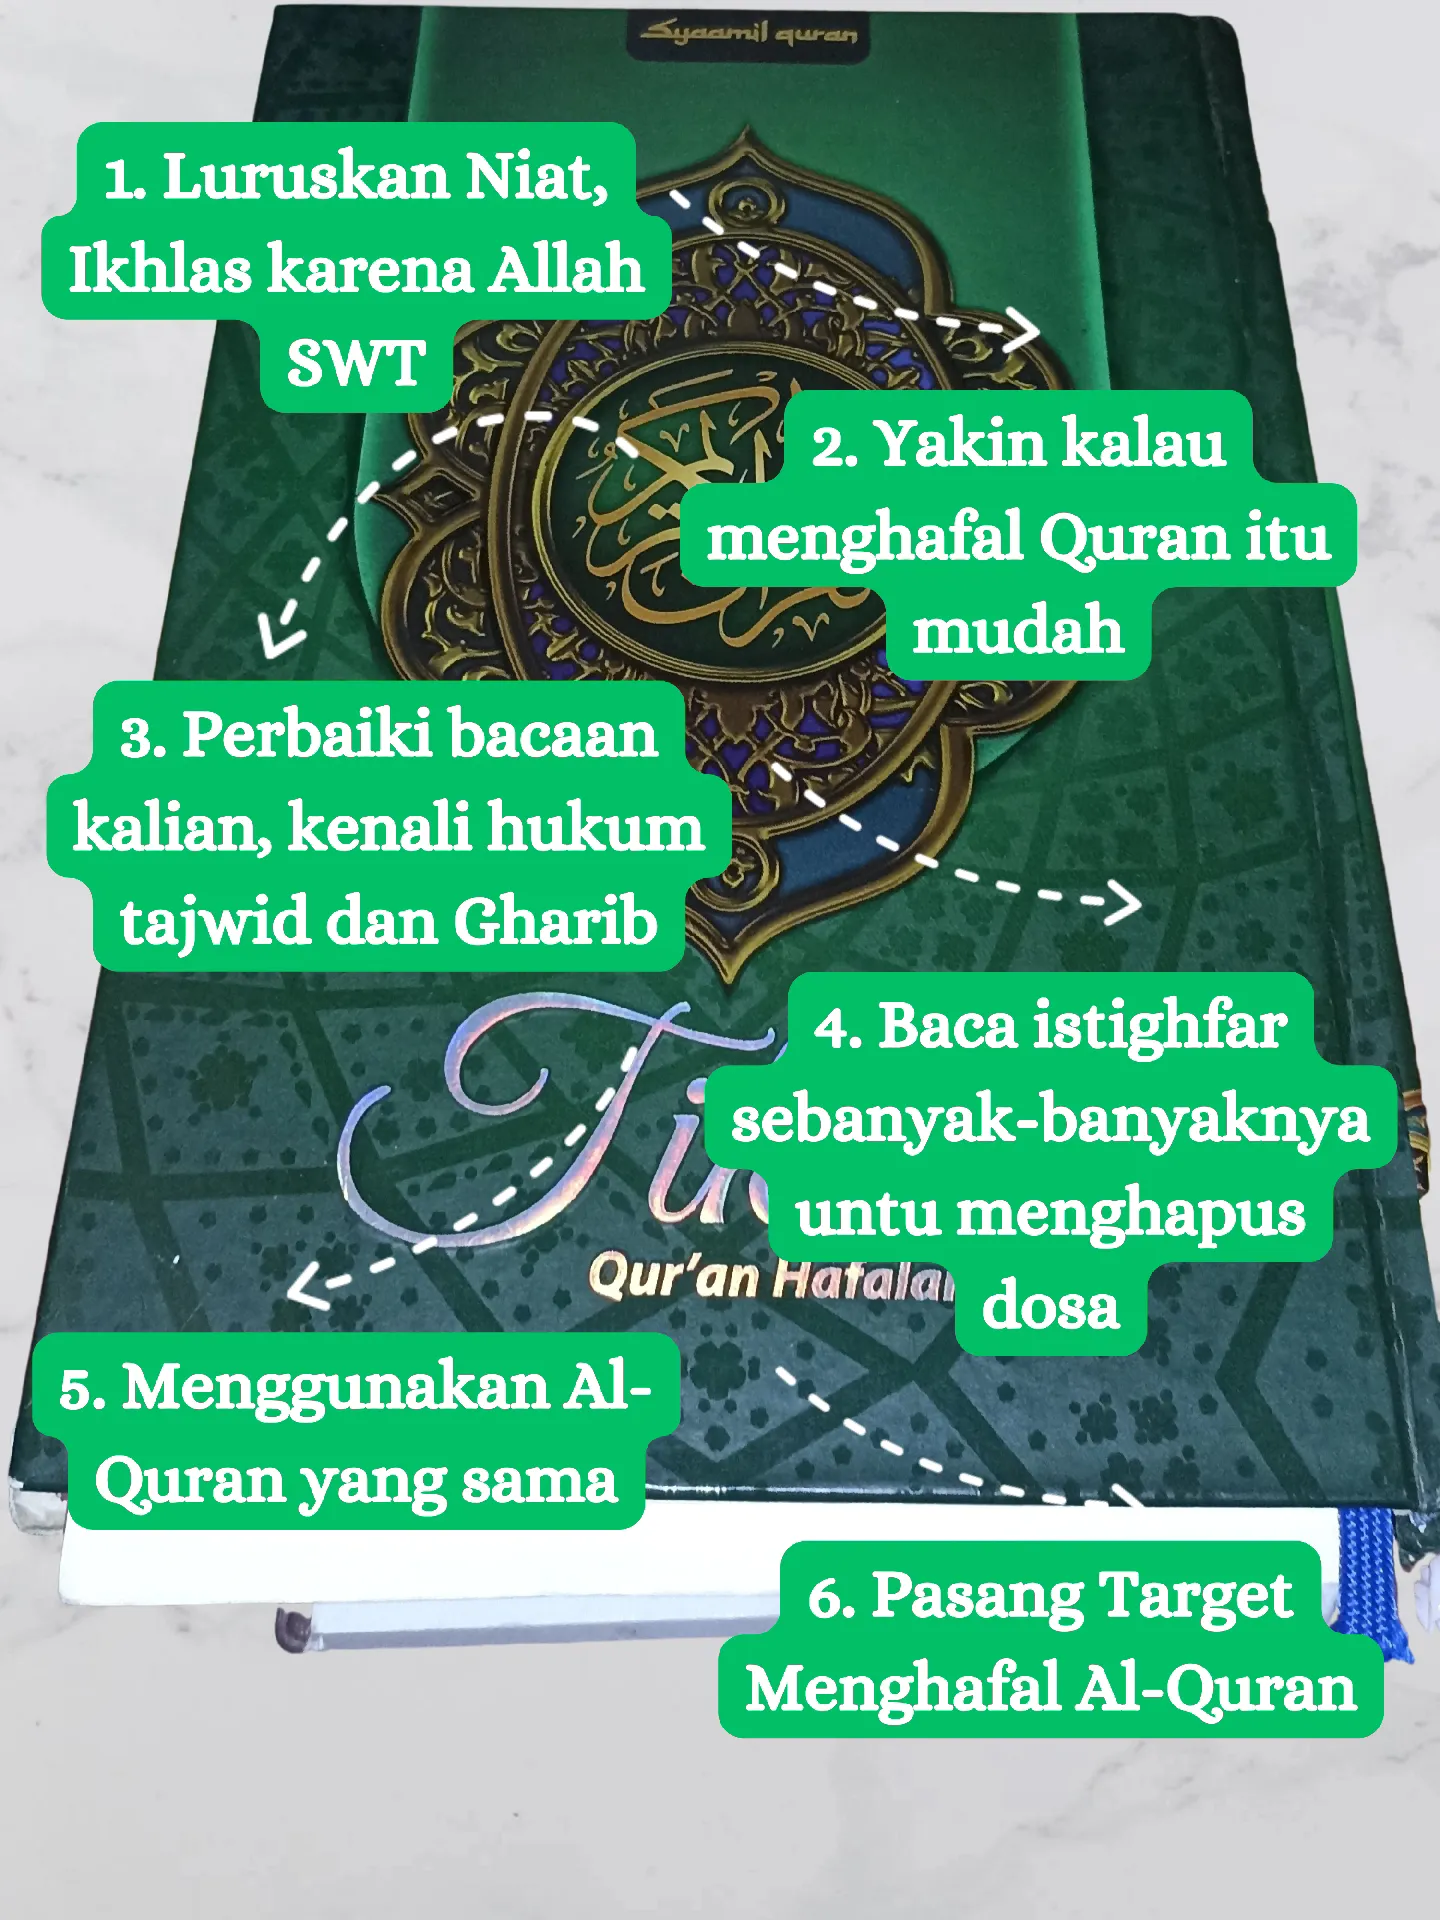 Syaamil quran
1. Luruskan Niat,
Ikhlas karena Allah
SWT
2. Yakin kalau
menghafal Quran itu
mudah
3. Perbaiki bacaan
kalian, kenali hukum
tajwid dan Gharib
4. Baca istighfar
sebanyak-banyaknya
untu menghapus
dosa
Qur'an Hafalan
5. Menggunakan Al-
Quran yang sama
6. Pasang Target
Menghafal Al-Quran